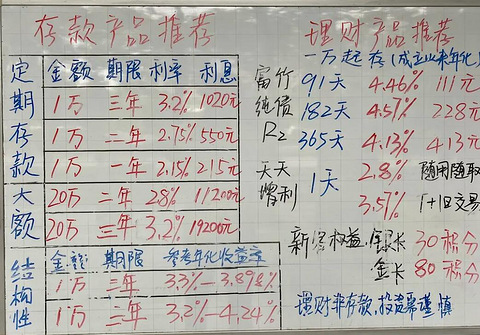 存款产品推荐
定期存款
金额 期限 利率 利息
1万 三年 3.2% 1020元
1万 二年 2.75% 550元
1万 一年 2.15% 215元
大额
20万 二年 2.8% 11200元
20万 三年 3.2% 19200元
结构性
金额 期限 参考年化收益率
1万
1万 3.2%-4.24%
理财产品推荐
一万起存(成立以来年化)
富竹纯债R2
91天 4.46% 111元
182天 4.57% 228元
365天 4.13% 413元
天天增利
1天 2.8% 随用随取
3.57% 1+1日交易
新客权益, 30积分
80积分
理财非存款,投资需谨慎